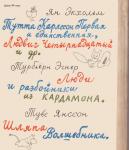 Ян Экхольм
Тутта Карлссон Первая
и единственная,
Людвиг Четырнадцатый
и др.
Турбьерн Эгнер
Люди
и разбойники
из Кардамона.
Туве Янссон
Шляпа
Волшебника.